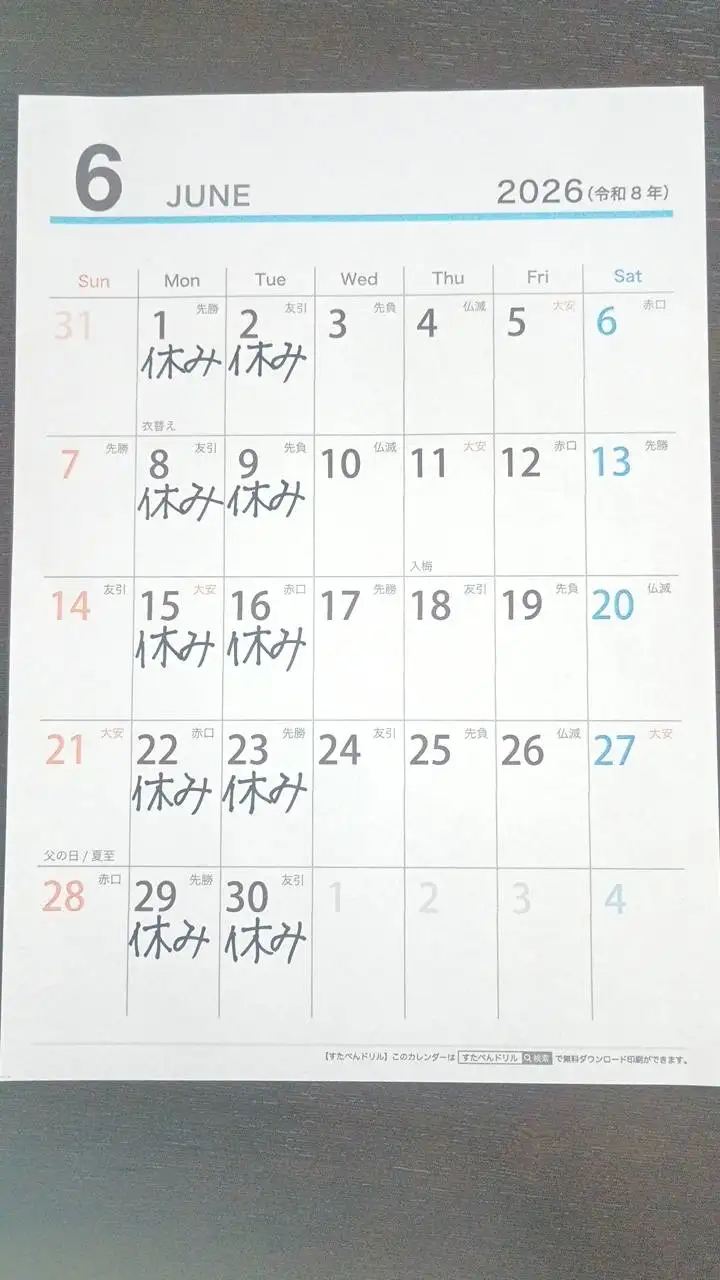 6 JUNE 2026(令和8年)
Sun Mon Tue Wed Thu Fri Sat
31 1 先勝 2 友引 3 先負 4 仏滅 5 大安 6 赤口
休み 休み
衣替え
7 先勝 8 友引 9 先負 10 仏滅 11 大安 12 赤口 13 先勝
休み 休み
入梅
14 友引 15 大安 16 赤口 17 先勝 18 友引 19 先負 20 仏滅
休み 休み
21 大安 22 赤口 23 先勝 24 友引 25 先負 26 仏滅 27 大安
休み 休み
父の日/夏至
28 赤口 29 先勝 30 友引 1 2 3 4
休み 休み
【すたぺんドリル】このカレンダーは すたぺんドリル 検索 で無料ダウンロード印刷ができます。